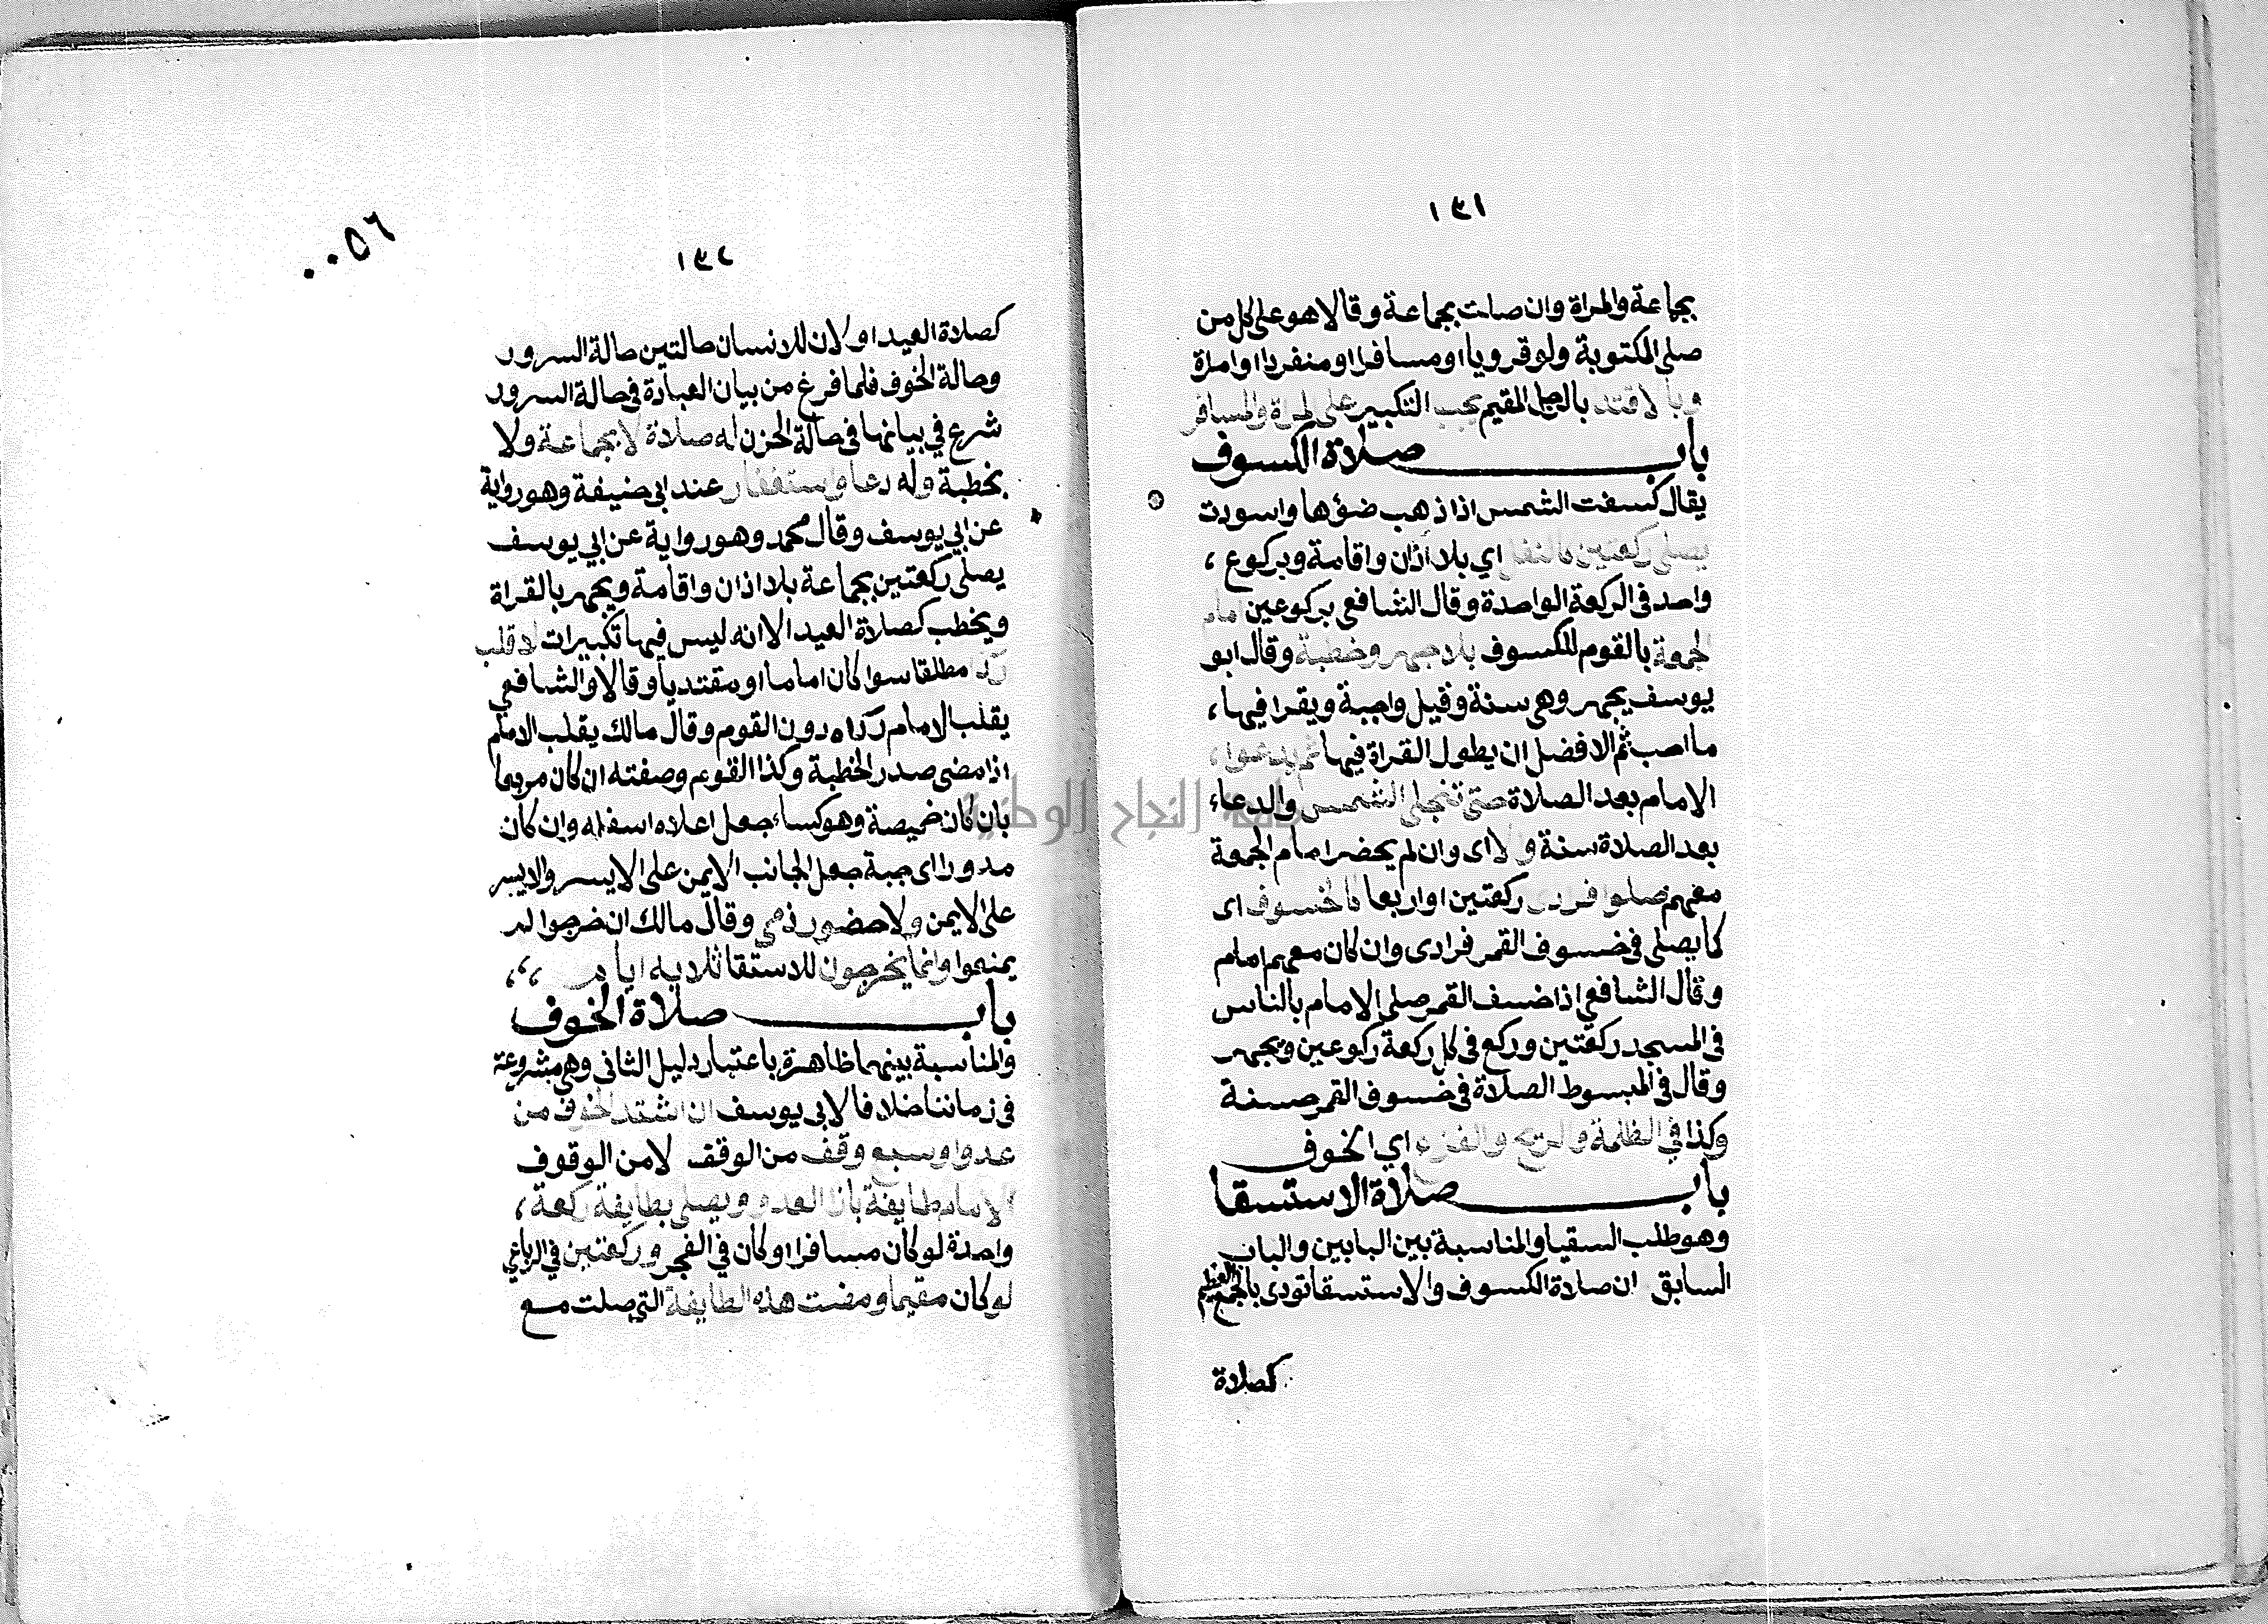 ١٣١
بجماعة والمراة وان صلت بجماعة وقالا هو على كل من
صلى المكتوبة ولو قرويا او مسافرا او منفردا او امراة
وبالاقتدا بالرجل المقيم يجب التكبير على المراة والمسافر
باب صلاة الكسوف
يقال كسفت الشمس اذا ذهب ضؤها واسودت
يصلى ركعتين كالنفل اي بلا اذان واقامة وبركوع ،
واحد فى الركعة الواحدة وقال الشافعى بركوعين امام
الجمعة بالقوم للكسوف بلا جهر وخطبة وقال ابو
يوسف يجهر وهى سنة وقيل واجبة ويقرا فيها ،
ما احب ثم الافضل ان يطول القراة فيها ثم يدعوا ،
الامام بعد الصلاة حتى تنجلى الشمس والدعاء
بعد الصلاة سنة والا اى وان لم يحضر امام الجمعة
معهم صلوا فرادى ركعتين او اربعا كالخسوف اى
كما يصلى فى خسوف القمر فرادى وان كان معهم امام
وقال الشافعي اذا خسف القمر صلى الامام بالناس
فى المسجد ركعتين وركع فى كل ركعة ركوعين ويجهر
وقال فى المبسوط الصلاة فى خسوف القمر حسنة
وكذا في الظلمة والريح والفزع اي الخوف
باب صلاة الاستسقا
وهو طلب السقيا والمناسبة بين البابين والباب
السابق ان صلاة الكسوف والاستسقا تودى بالجمع العظيم
كصلاة
١٣٢
٠٠٥٦
كصلاة العيد او لان للانسان حالتين حالة السرور
وحالة الخوف فلما فرغ من بيان العبادة فى حالة السرور
شرع في بيانها فى حالة الحزن له صلاة لا بجماعة ولا
بخطبة وله دعا واستغفار عند ابى حنيفة وهو رواية
عن ابي يوسف وقال محمد وهو رواية عن ابي يوسف
يصلى ركعتين بجماعة بلا اذان واقامة ويجهر بالقراة
ويخطب كصلاة العيد الا انه ليس فيها تكبيرات لا قلب
ردا مطلقا سوا كان اماما او مقتديا وقالا والشافعي
يقلب الامام رداه دون القوم وقال مالك يقلب الامام
اذا مضى صدر الخطبة وكذا القوم وصفته ان كان مربعا
بان كان خميصة وهو كساء جعل اعلاه اسفله وان كان
مدورا اى جبة جعل الجانب الايمن على الايسر والايسر
على الايمن ولا حضور ذمي وقال مالك ان خرجوا لم
يمنعوا وانما يخرجون للاستقا ثلاثه ايام ،،،
باب صلاة الخوف
والمناسبة بينهما ظاهرة باعتبار دليل الثانى وهى مشروعة
فى زماننا خلافا لابى يوسف ان اشتد الخوف من
عدو او سبع وقف من الوقف لا من الوقوف
الامام طايفة بازا العدو ويصلى بطايفة ركعة ،
واحدة لو كان مسافرا او كان في الفجر وركعتين في الرباعي
لو كان مقيما ومضت هذه الطايفة التى صلت مع
جامعة النجاح الوطنية